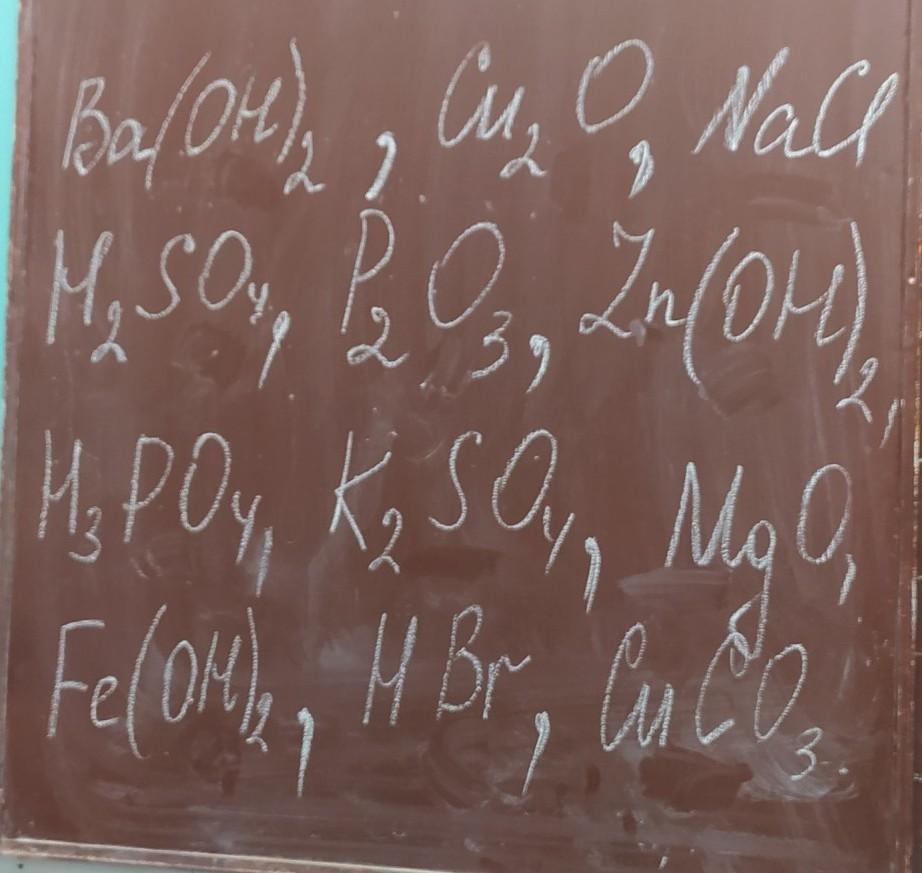 Ba(OH)₂, Cu₂O, NaCl
H₂SO₄, P₂O₃, Zn(OH)₂,
H₃PO₄, K₂SO₄, MgO,
Fe(OH)₂, HBr, CuCO₃.